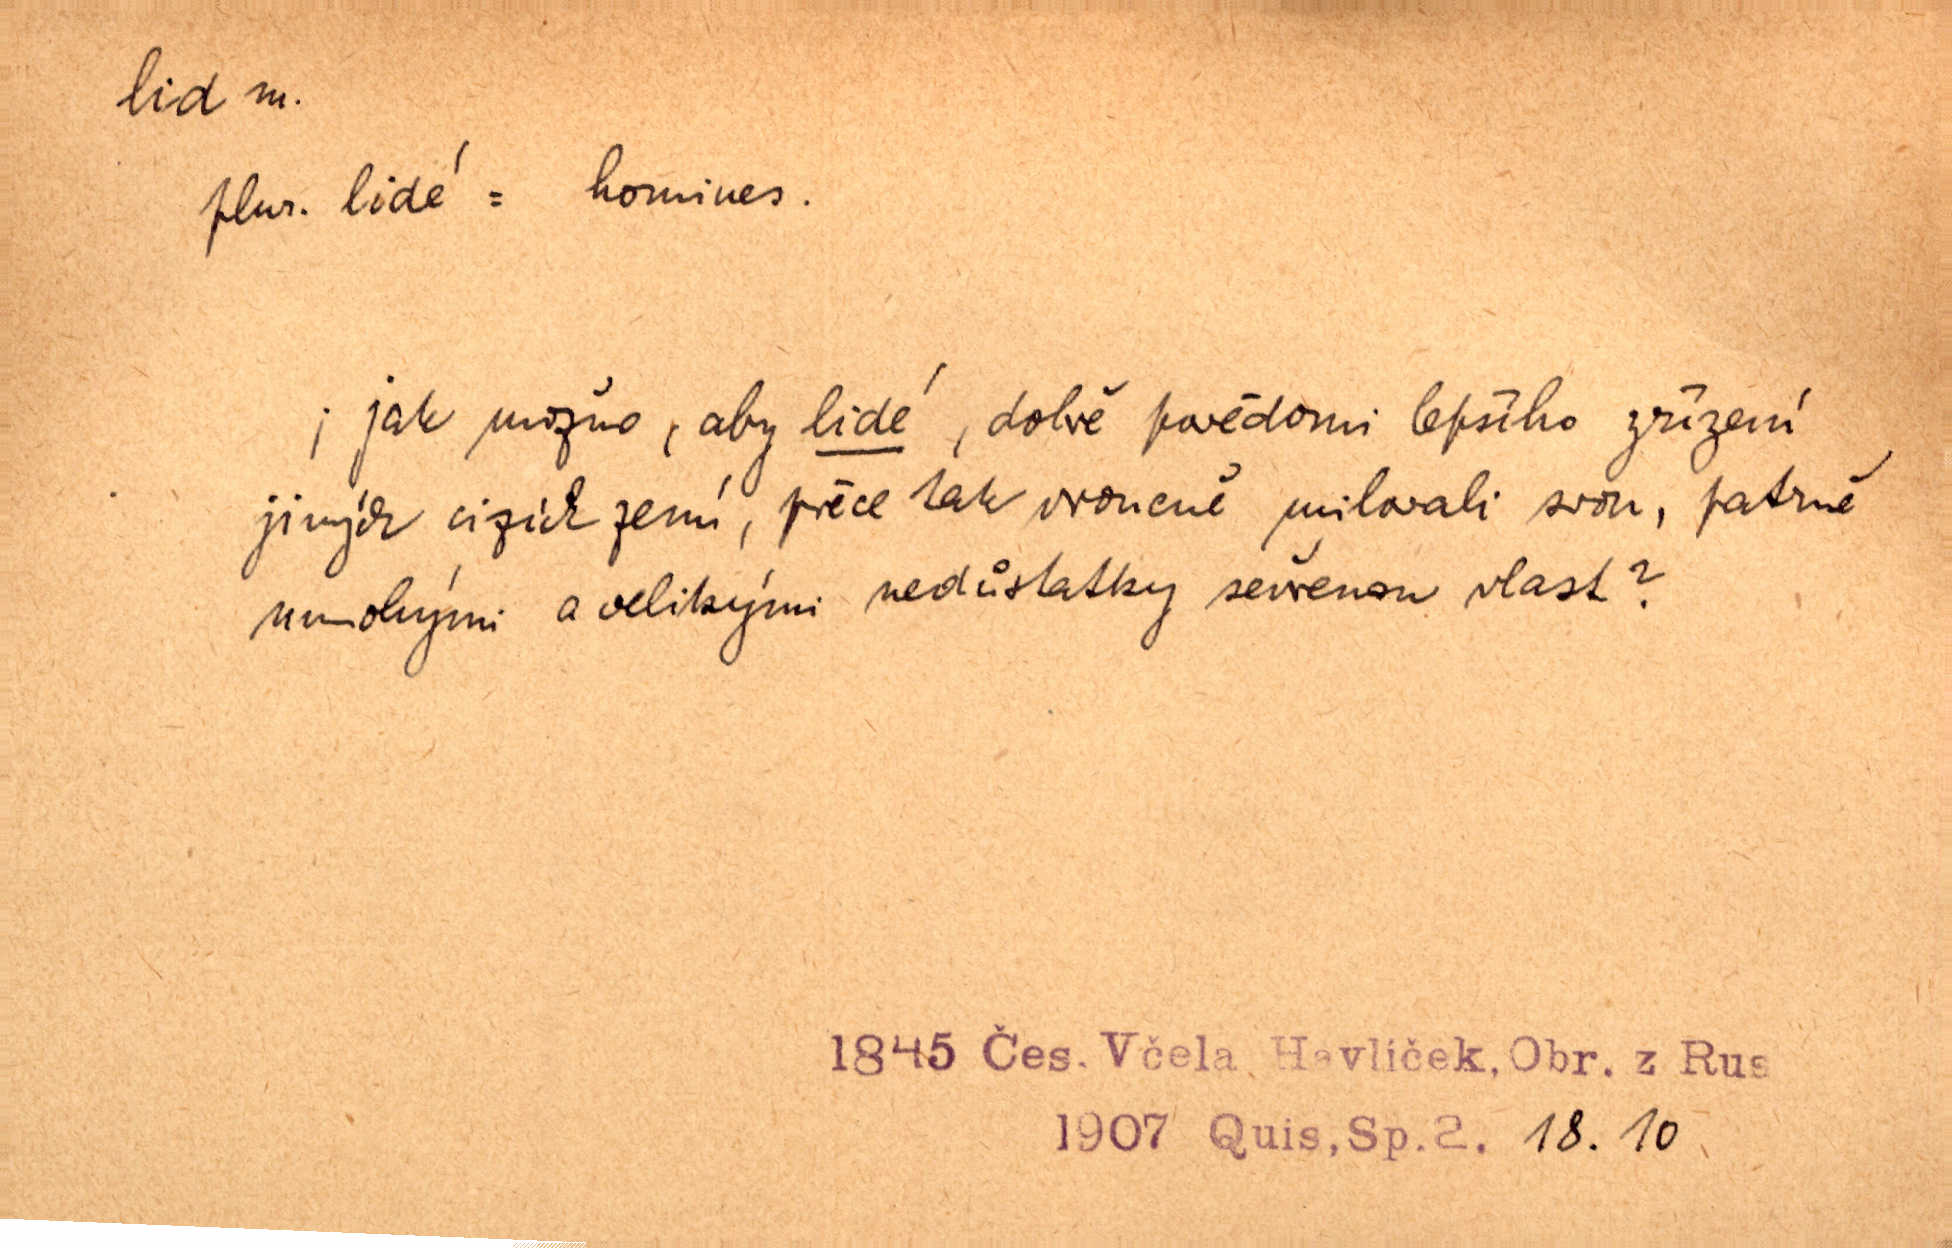 lid m.
plur. lidé = homines.
; jak možno, aby lidé, dobře povědomi lepšího zřízení
jiných cizích zemí, přece tak vroucně milovali svou, patrně
mnohými a velikými nedůstatky sevřenou vlast?
1845 Čes. Včela Havlíček, Obr. z Rus
1907 Quis, Sp. 2. 18. 10